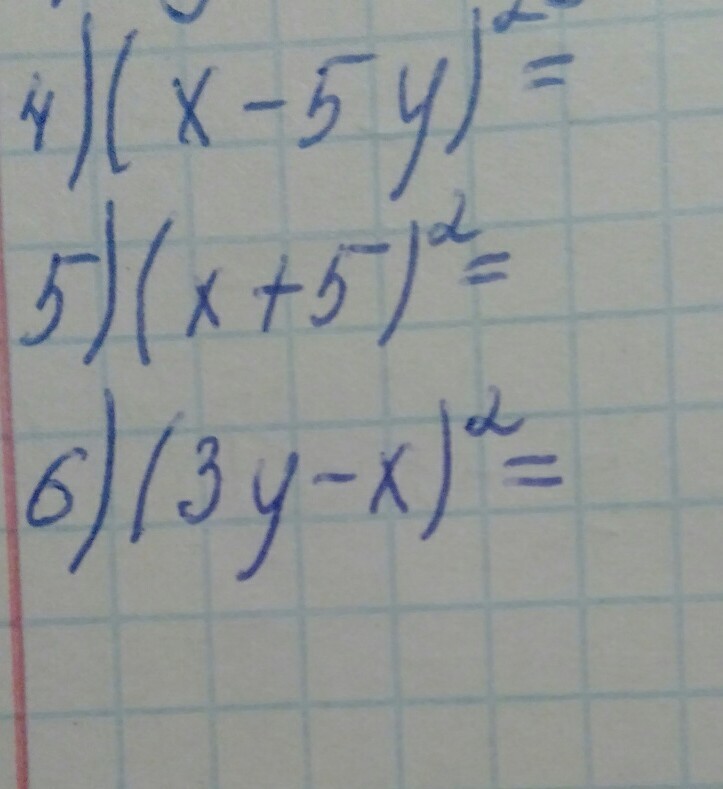 4) (x - 5y)² =
5) (x + 5)² =
6) (3y - x)² =